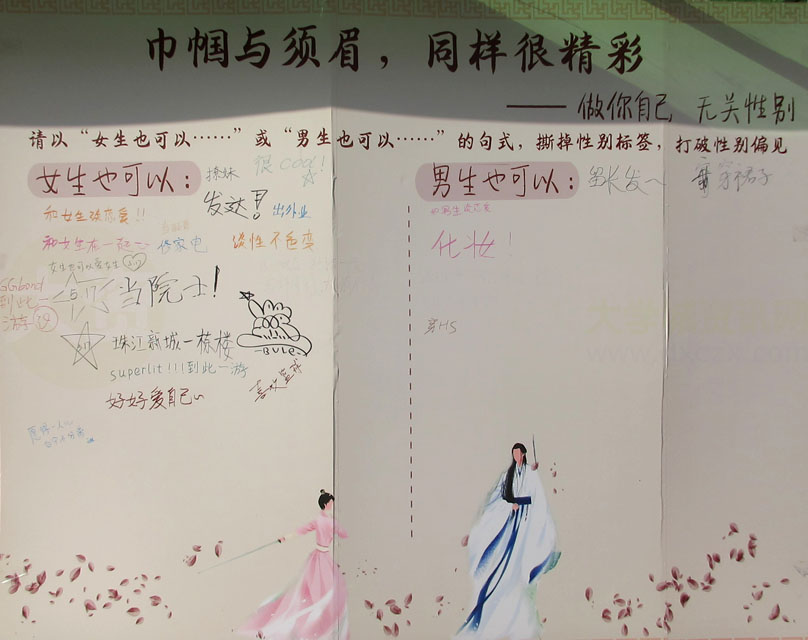 巾帼与须眉，同样很精彩
——做你自己 无关性别
请以“女生也可以……”或“男生也可以……”的句式，撕掉性别标签，打破性别偏见
女生也可以：
很cool!
发达!
出外业
和女生谈恋爱!!
和女生在一起
修家电
谈性不色变
女生也可以爱女生
GGbond
到此一
当院士!
珠江新城一栋楼
BULE
superlit!!!到此一游
好好爱自己~
男生也可以：
留长发~
穿裙子
和男生谈恋爱
化妆!
穿HS